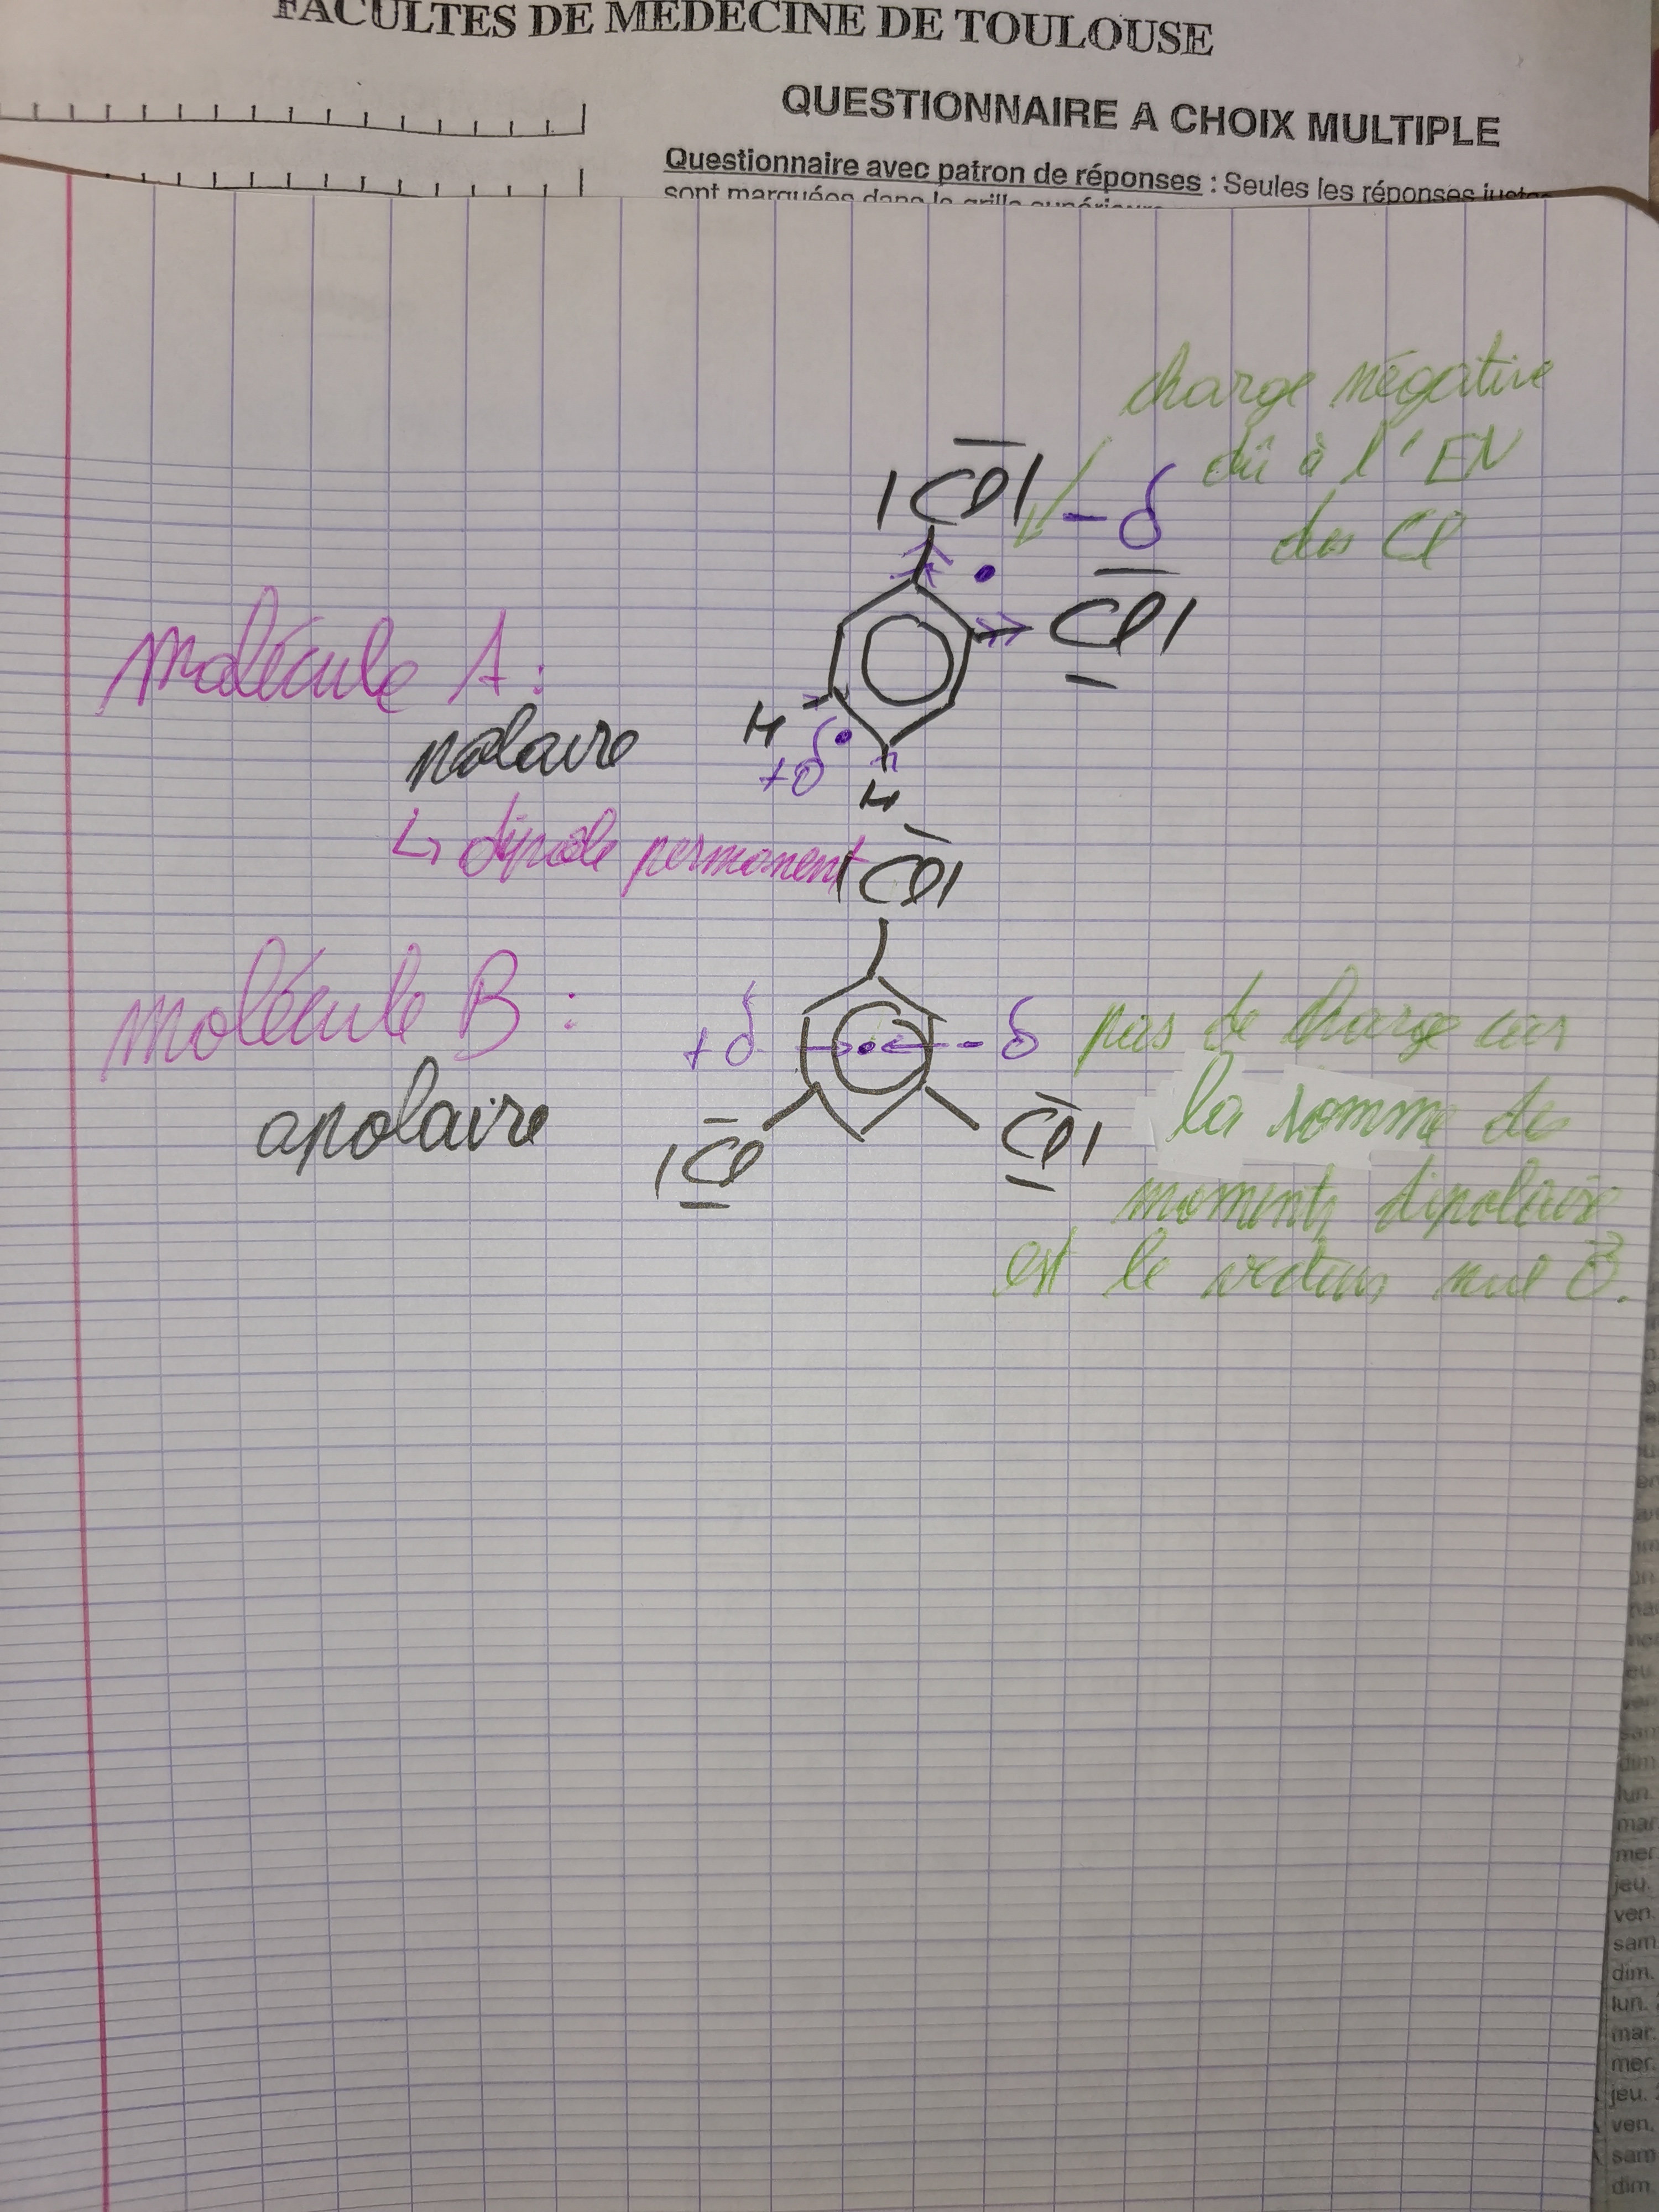 FACULTES DE MEDECINE DE TOULOUSE
QUESTIONNAIRE A CHOIX MULTIPLE
Questionnaire avec patron de réponses : Seules les réponses justes
sont marquées dans la grille supérieure
charge négative
dû à l'EN
des Cl
|Cl|
-δ
Cl|
molécule A :
polaire
H
+δ
H
↳ dipôle permanent
|Cl|
molécule B :
+δ
-δ
pas de charge car
apolaire
|Cl
Cl|
la somme des
moments dipolaires
est le vecteur nul 0.
mar.
mer.
jeu.
ven.
sam
dim.
lun.
mar.
mer.
jeu.
ven.
sam
dim